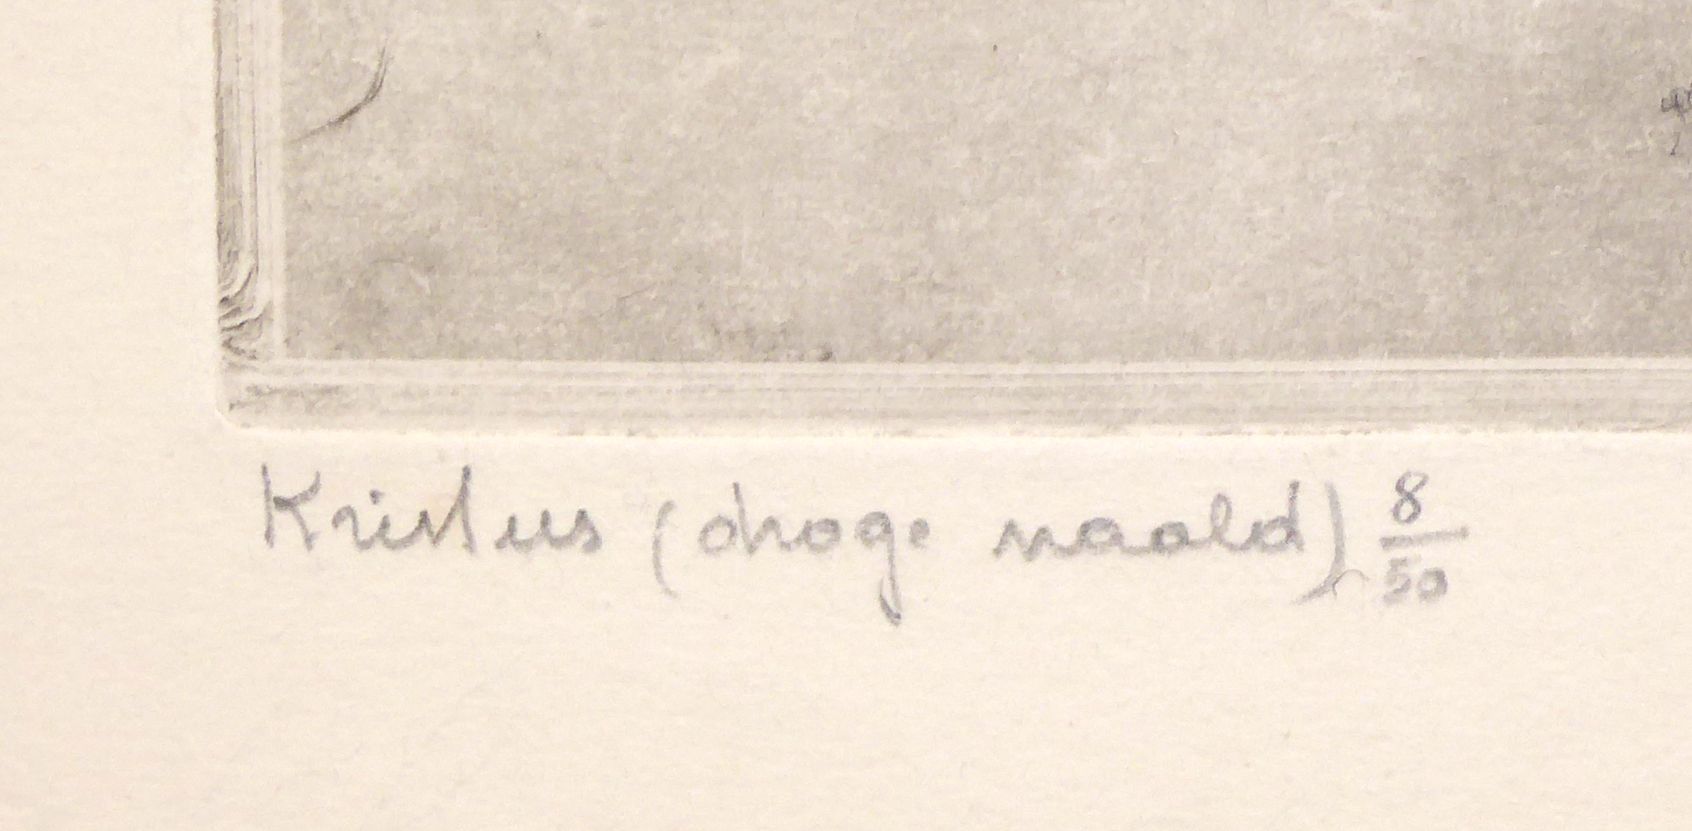 Kristus (droge naald) 8/50